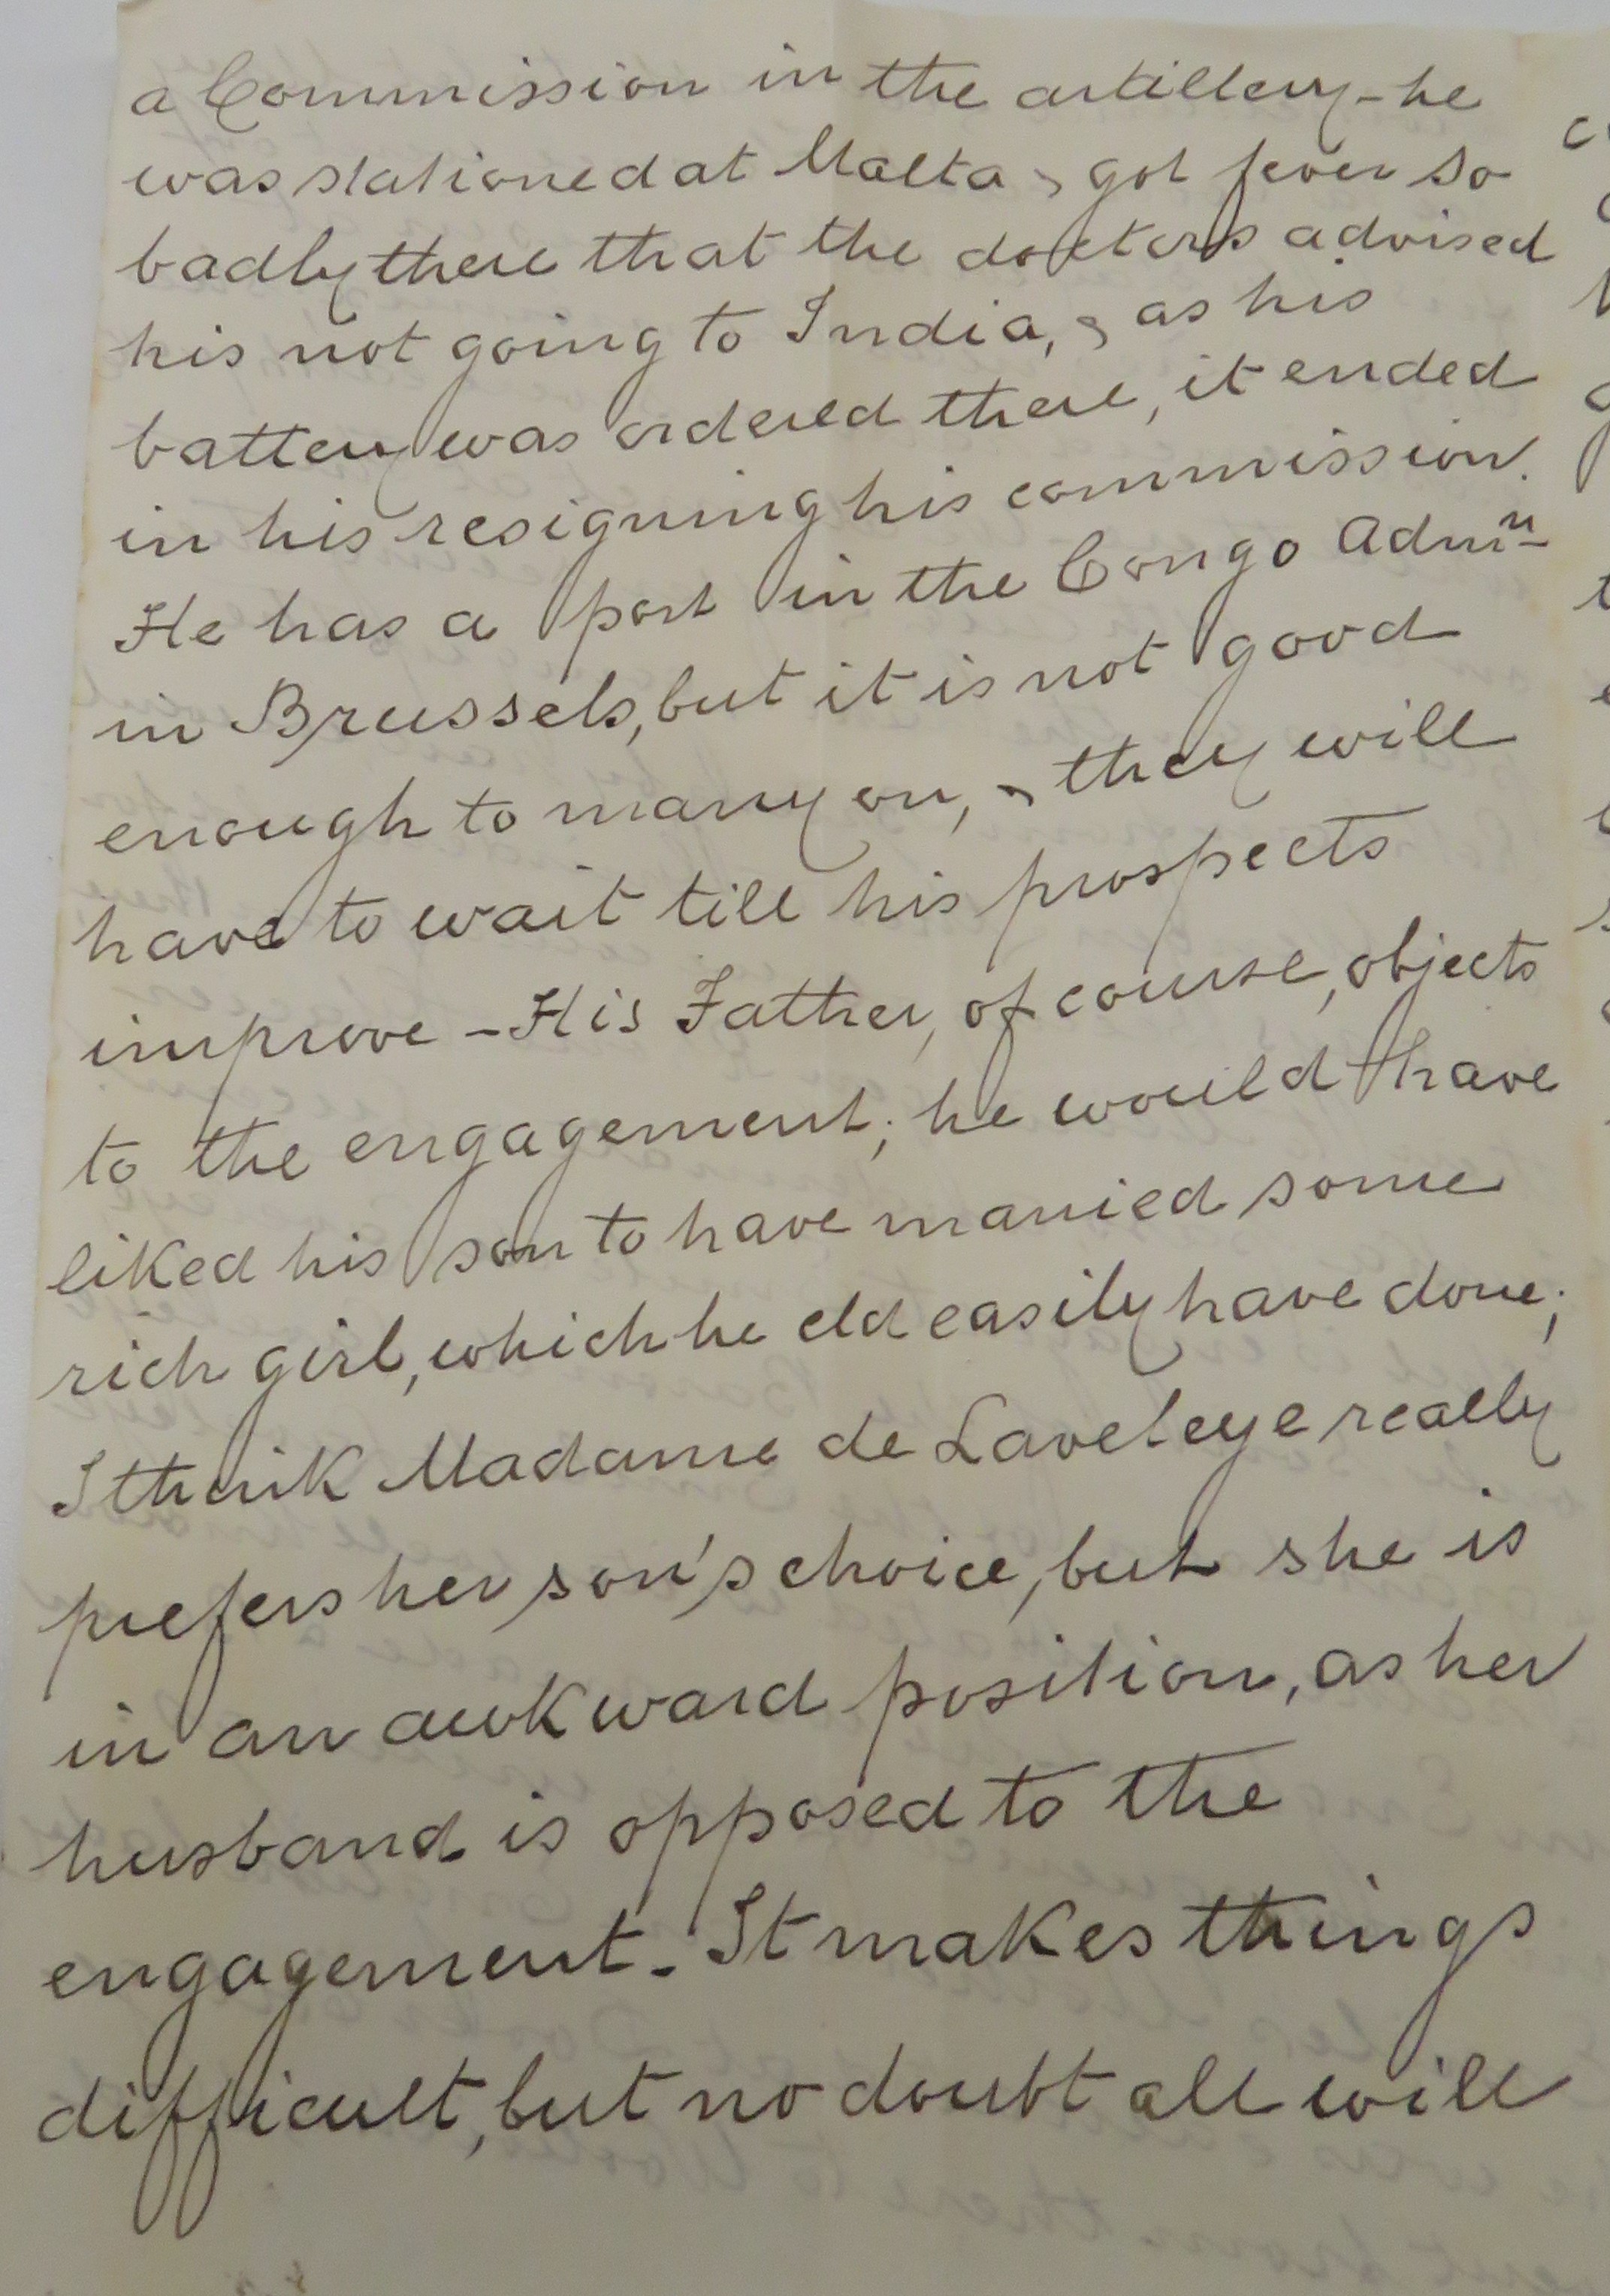 a Commission in the artillery - he
was stationed at Malta & got fever so
badly there that the doctors advised
his not going to India, & as his
battery was ordered there, it ended
in his resigning his commission.
He has a post in the Congo Admⁿ
in Brussels, but it is not good
enough to marry on, & they will
have to wait till his prospects
improve - His Father, of course, objects
to the engagement; he would have
liked his son to have married some
rich girl, which he cld easily have done;
I think Madame de Laveleye really
prefers her son's choice, but she is
in an awkward position, as her
husband is opposed to the
engagement. It makes things
difficult, but no doubt all will